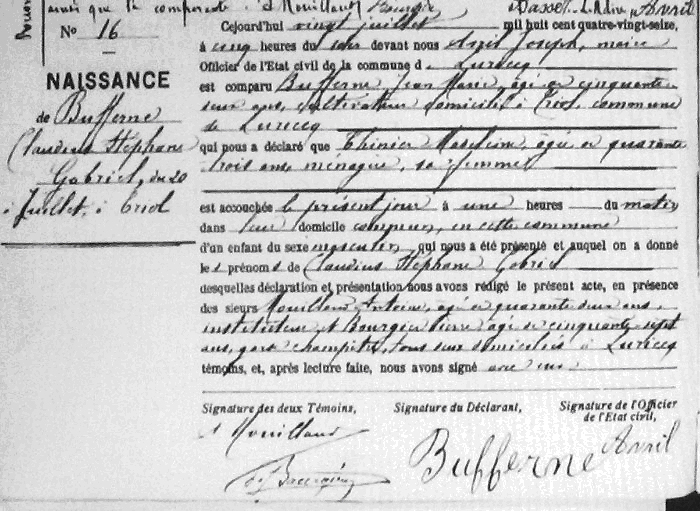 ainsi que le comparant. A Mouillaud Bourgier Basset Avril
N° 16
NAISSANCE
de Bufferne
Claudius Stéphane
Gabriel, du 20
Juillet, à Criol
Cejourd'hui vingt juillet mil huit cent quatre-vingt-seize,
à cinq heures du soir devant nous Avril Joseph, maire
Officier de l'Etat civil de la commune de Luriecq
est comparu Bufferne Jean Marie, âgé de cinquante
deux ans, cultivateur domicilié à Criol, commune
de Luriecq
qui nous a déclaré que Thinier, âgée de quarante
trois ans, ménagère, sa femme
est accouchée le présent jour à une heures du matin
dans leur domicile commun, en cette commune
d'un enfant du sexe masculin qui nous a été présenté et auquel on a donné
les prénoms de Claudius Stéphane Gabriel
desquelles déclaration et présentation nous avons rédigé le présent acte, en présence
des sieurs Mouillaud Antoine, âgé de quarante deux ans,
instituteur et Bourgier Pierre âgé de cinquante sept
ans, garde champêtre, tous deux domiciliés à Luriecq
témoins, et, après lecture faite, nous avons signé avec eux
Signature des deux Témoins, Signature du Déclarant, Signature de l'Officier
de l'Etat civil,
A Mouillaud
Bufferne Avril